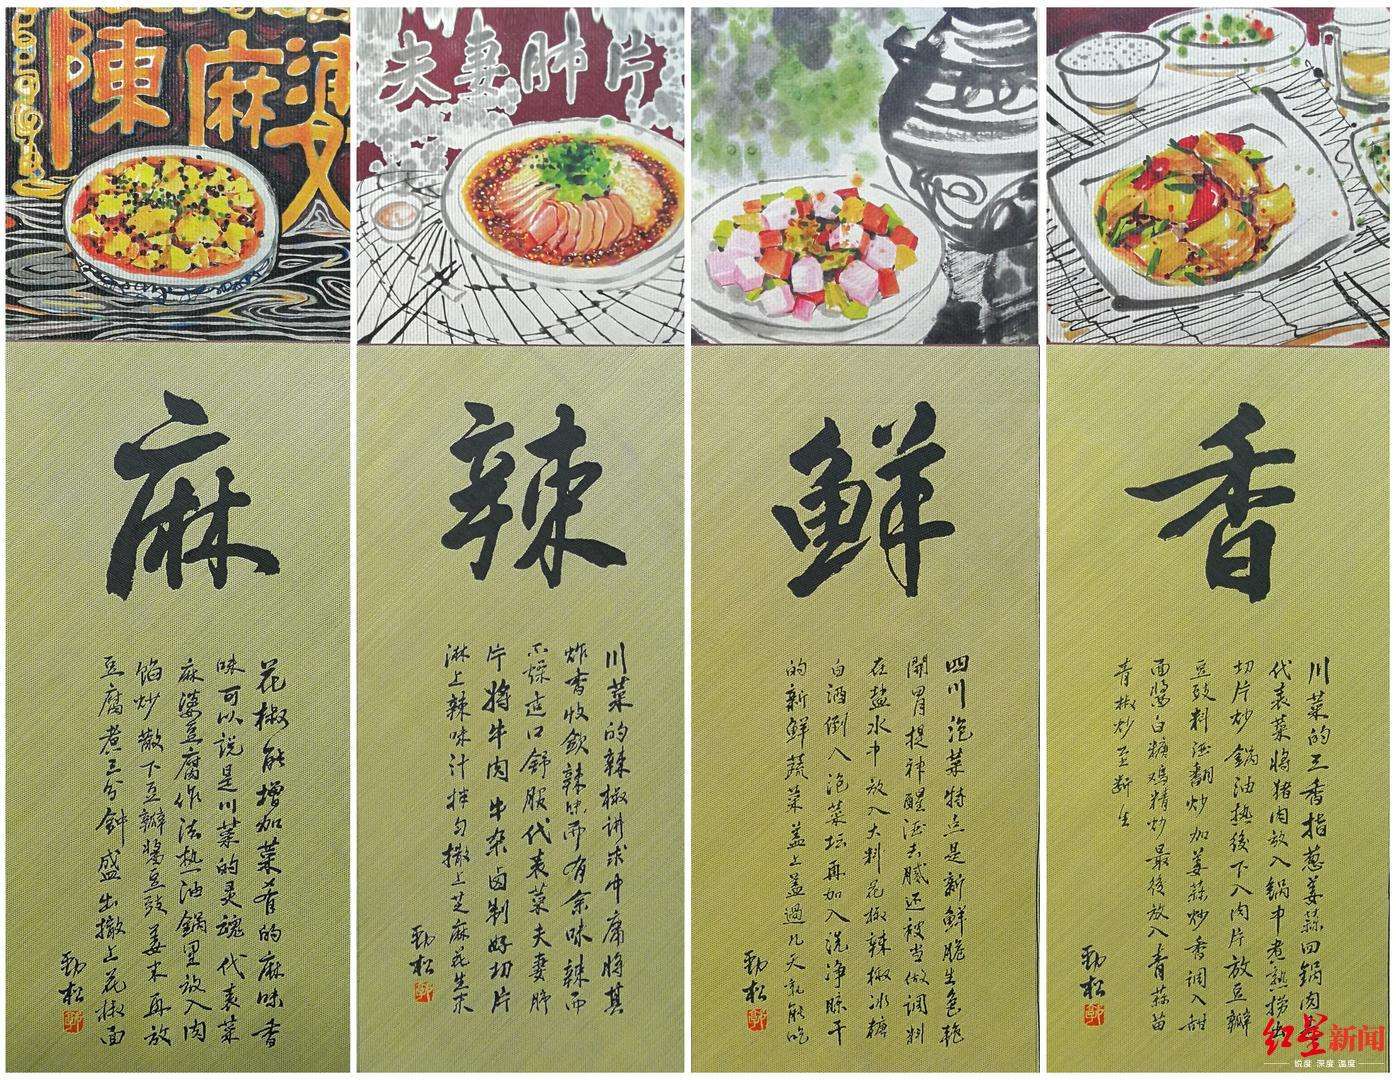 陳麻婆
麻
花椒能增加菜肴的麻味香
味可以说是川菜的灵魂代表菜
麻婆豆腐作法热油锅里放入肉
馅炒散下豆瓣酱豆豉姜末再放
豆腐煮三分钟盛出撒上花椒面
劲松
夫妻肺片
辣
川菜的辣椒讲求中庸将其
炸香收敛辣味而有余味辣而
不燥适口舒服代表菜夫妻肺
片将牛肉牛杂卤制好切片
淋上辣味汁拌匀撒上芝麻花生末
劲松
鮮
四川泡菜特点是新鮮脆生色艳
開胃提神醒酒去腻还被当做调料
在盐水中放入大料花椒辣椒冰糖
白酒倒入泡菜坛再加入洗净晾干
的新鮮蔬菜盖上盖過几天就能吃
劲松
香
川菜的三香指葱姜蒜回锅肉
代表菜将猪肉放入锅中煮熟捞出
切片炒锅油热後下入肉片放豆瓣
豆豉料酒翻炒加姜蒜炒香调入甜
面酱白糖鸡精炒最後放入青蒜苗
青椒炒至断生
劲松
红星新闻
锐度 深度 温度